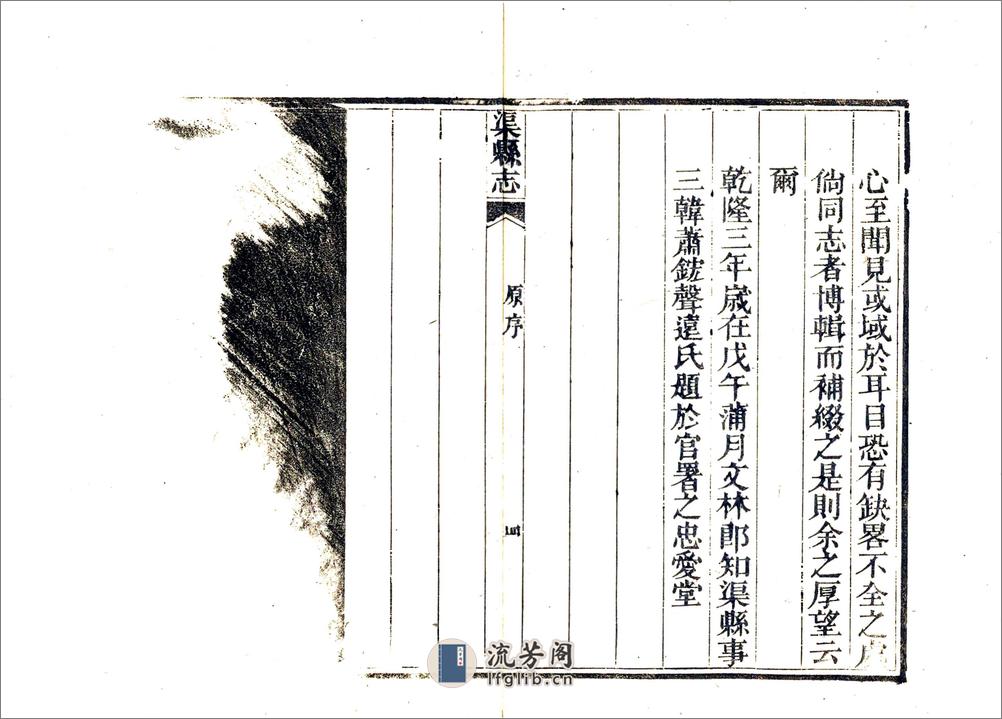 心至聞見或域於耳目恐有缺畧不全之處
倘同志者博輯而補綴之是則余之厚望云
爾
乾隆三年歲在戊午蒲月文林郎知渠縣事
三韓蕭鋐聲遠氏題於官署之忠愛堂
渠縣志
原序
四
流芳阁
lfglib.cn